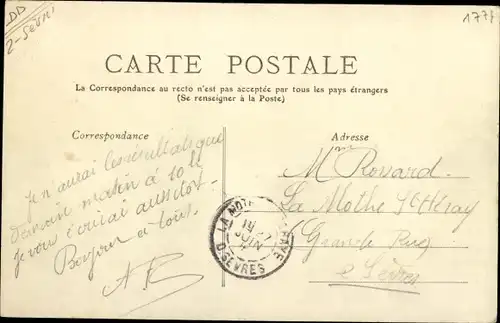 DD
2-Sèvres
177
CARTE POSTALE
La Correspondance au recto n'est pas acceptée par tous les pays étrangers
(Se renseigner à la Poste)
Correspondance
Adresse
Je n'aurai les résultats que
demain matin à 10 h
je vous écrirai aussitôt.
Bonjour à tous.
M Rossard
La Mothe St Héray
(Grande Rue)
2 Sèvres
LA MOTHE
19
JUIN
D. SEVRES